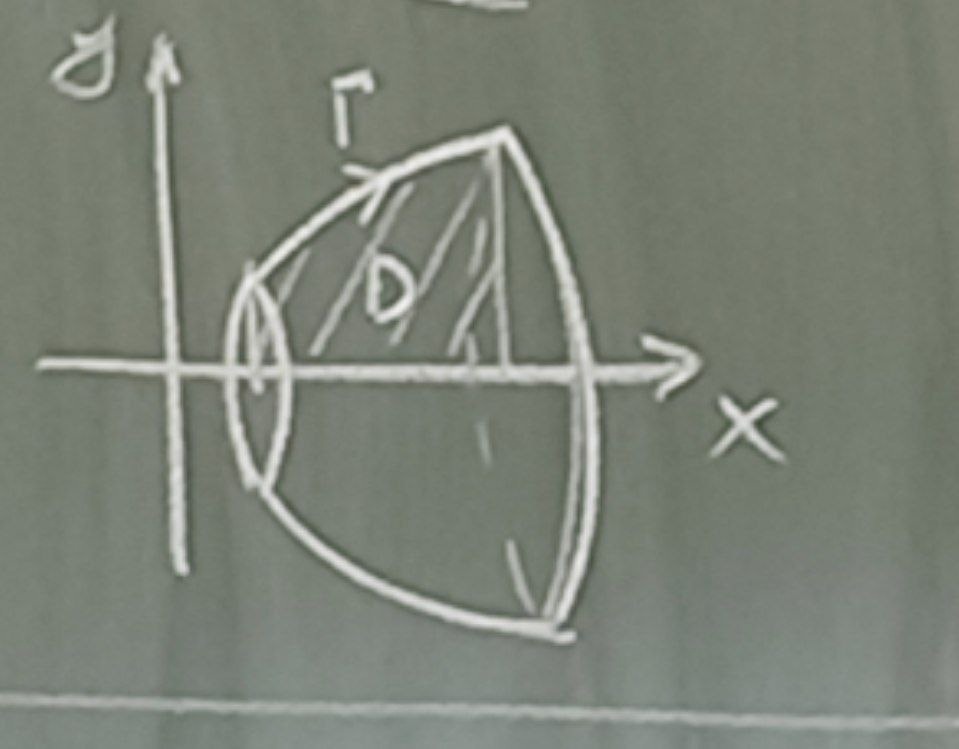 y
Γ
D
x